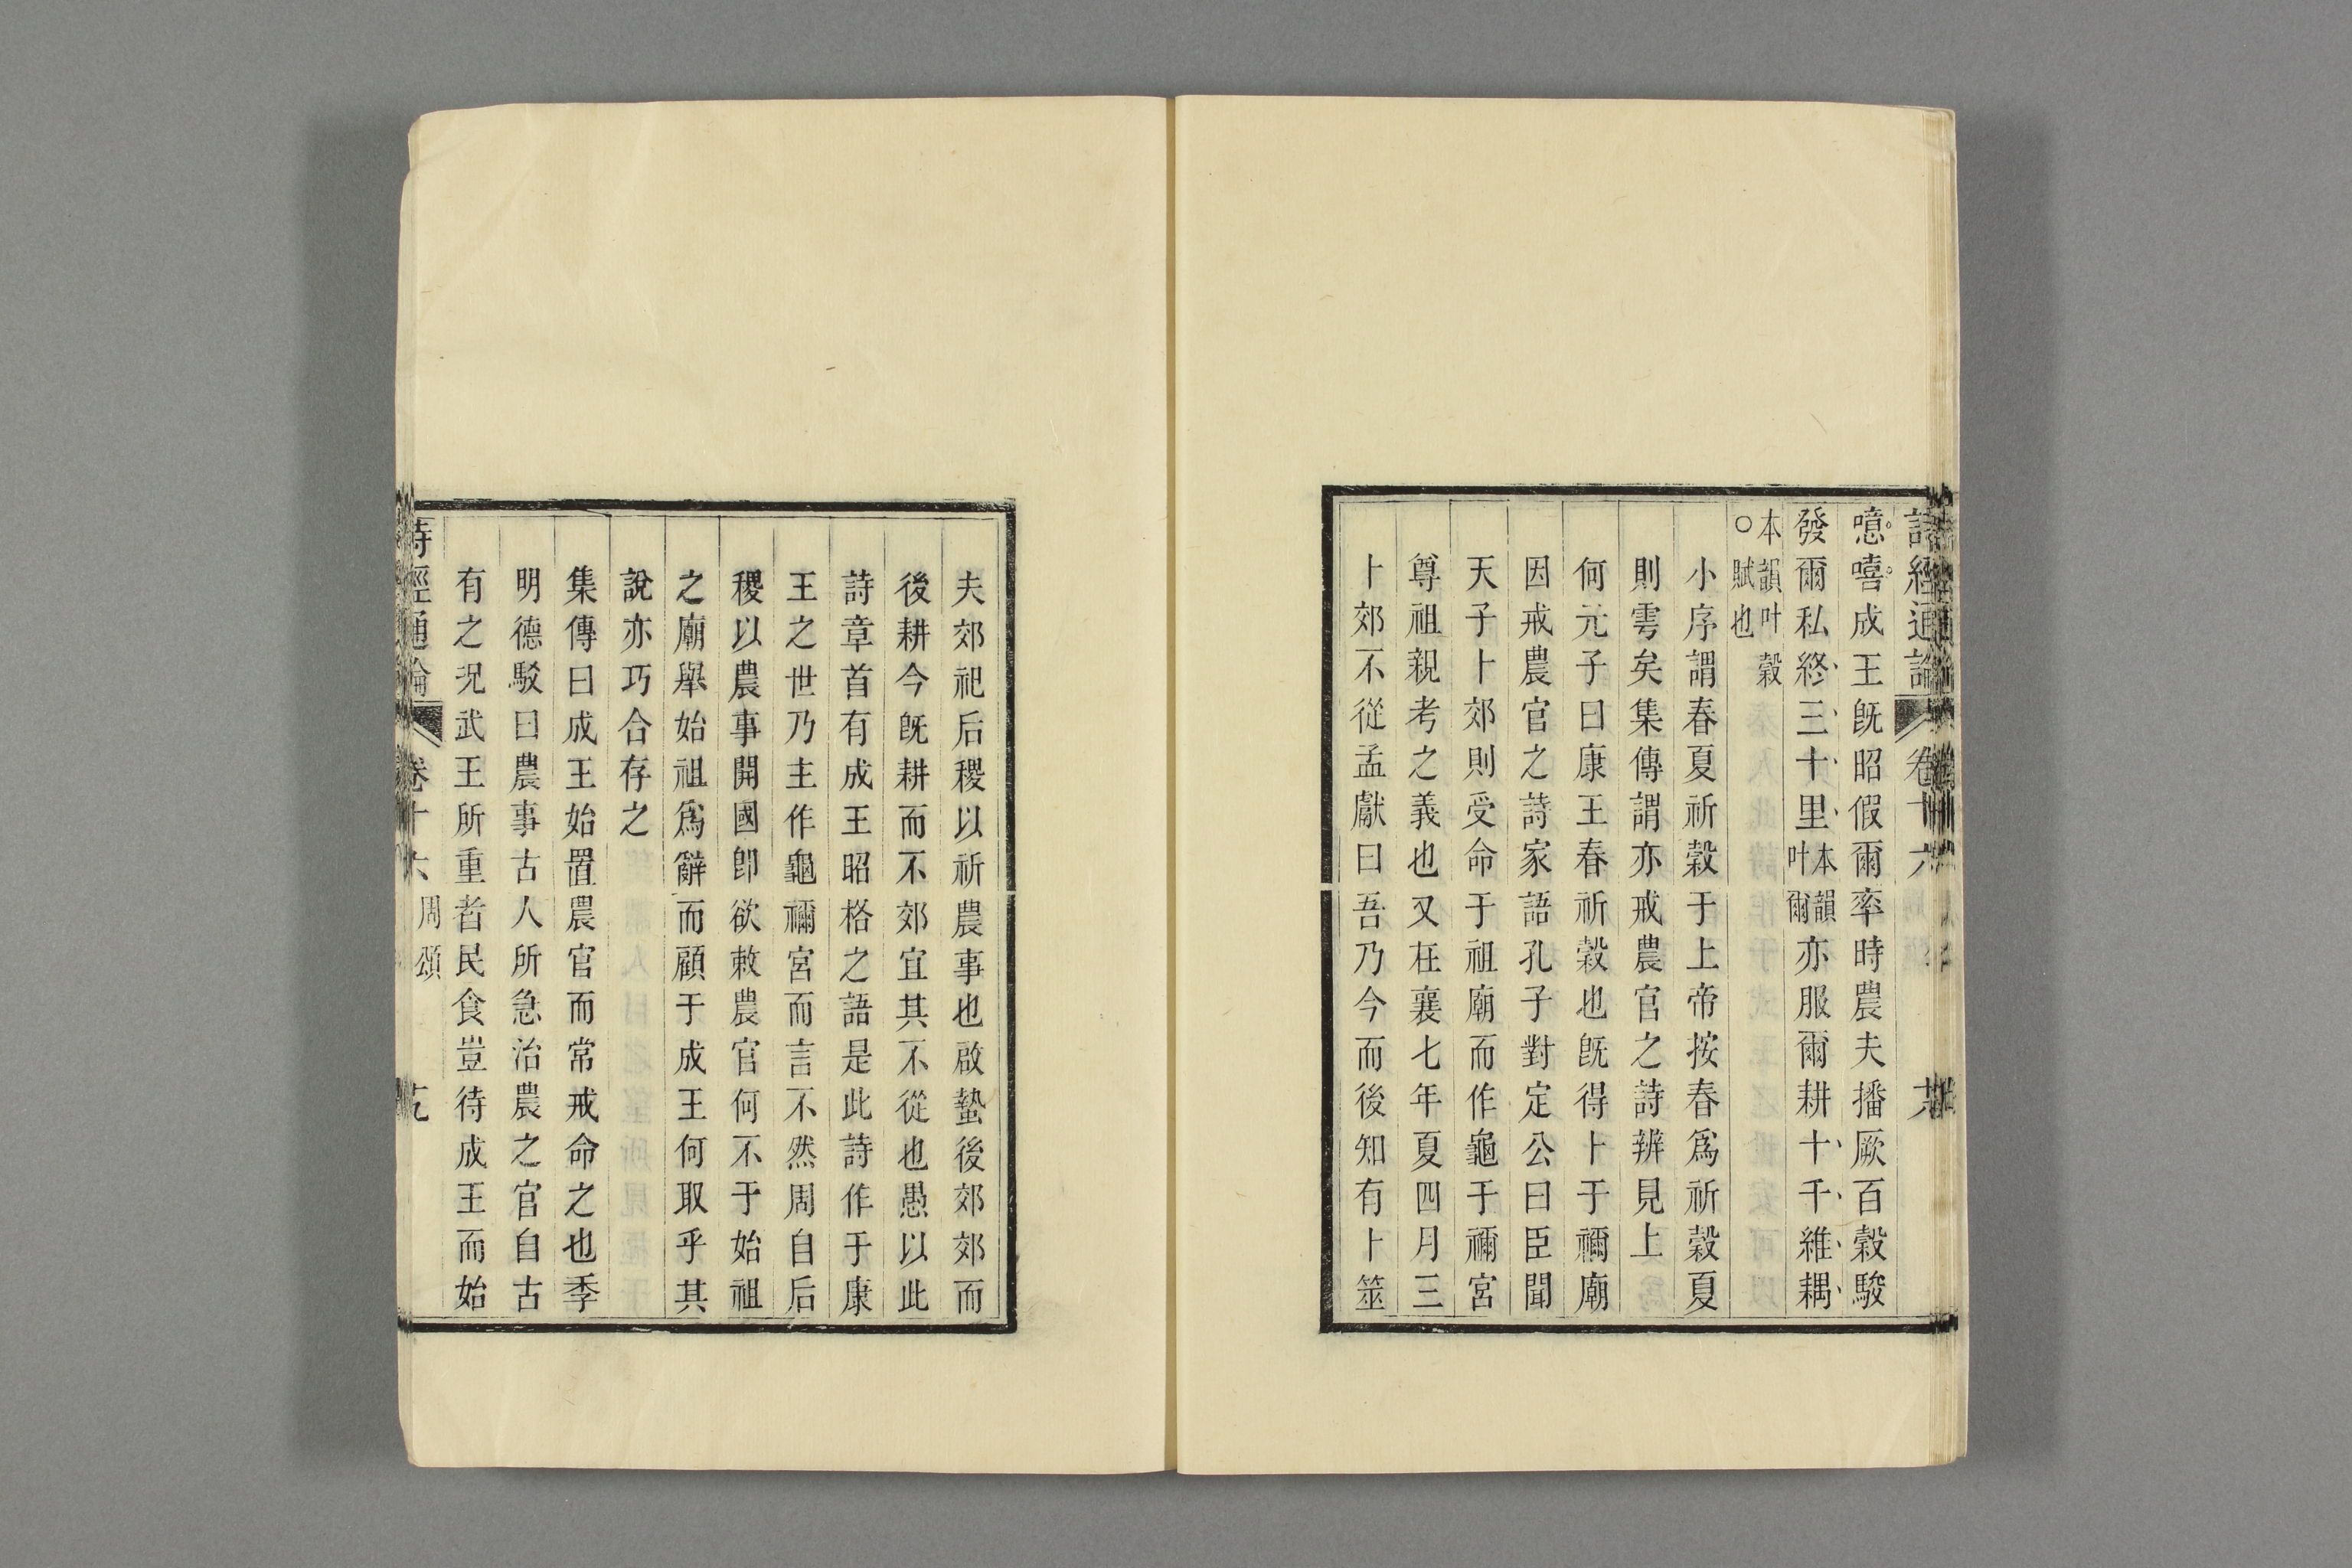 詩經通論 卷十六
噫嘻成王既昭假爾率時農夫播厥百穀駿
發爾私終三十里本韻叶爾亦服爾耕十千維耦
本韻叶穀○賦也
小序謂春夏祈穀于上帝按春爲祈穀夏
則雩矣集傳謂亦戒農官之詩辨見上
何元子曰康王春祈穀也既得卜于禰廟
因戒農官之詩家語孔子對定公曰臣聞
天子卜郊則受命于祖廟而作龜于禰宮
尊祖親考之義也又在襄七年夏四月三
卜郊不從孟獻曰吾乃今而後知有卜筮
夫郊祀后稷以祈農事也啟蟄後郊郊而
後耕今既耕而不郊宜其不從也愚以此
詩章首有成王昭格之語是此詩作于康
王之世乃主作龜禰宮而言不然周自后
稷以農事開國卽欲敕農官何不于始祖
之廟舉始祖爲辭而顧于成王何取乎其
說亦巧合存之
集傳曰成王始置農官而常戒命之也季
明德駁曰農事古人所急治農之官自古
有之況武王所重者民食豈待成王而始
詩經通論 卷十六 周頌